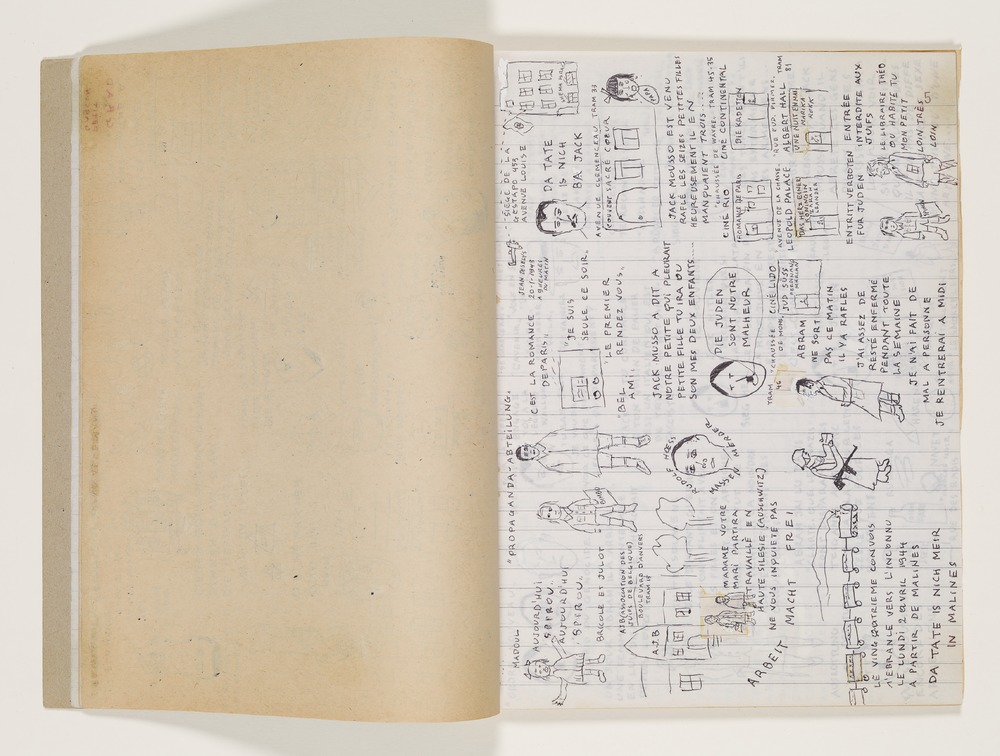 MADOUL
AUJOURD'HUI
SPIROU.
AUJOURD'HUI
SPIROU.
BRICOLE ET JULOT
"PROPAGANDA-ABTEILUNG.
C'EST LA ROMANCE
DE PARIS..
JEAN
20-11-1943
A 9 HEURES
DU MATIN
"JE SUIS
SEULE CE SOIR.
"LE PREMIER
RENDEZ VOUS..
"BEL
AMI..
SIEGE DE LA
GESTAPO 453
AVENUE LOUISE
DA TATE
IS NICH
BA JACK
AVENUE CLEMENCEAU TRAM 33
COUVENT SACRÉ COEUR
AJB (ASSOCIATION DES
JUIFS DE BELGIQUE)
BOULEVARD D'ANVERS
TRAM 18
A.J.B
RUDOLF HOESS
MASSEN MERDER
JACK MUSSO A DIT A
NOTRE PETITE QUI PLEURAIT
PETITE FILLE TU IRA OU
SON MES DEUX ENFANTS...
JACK MOUSSO EST VENU
RAFLÉ LES SEIZES PETITES FILLES
HEUREUSEMENT IL EN
MANQUAIENT TROIS....
MADAME VOTRE
MARI PARTIRA
TRAVAILLÉ EN
HAUTE SILESIE (AUSCHWITZ)
NE VOUS INQUIETE PAS
ARBEIT MACHT FREI
DIE JUDEN
SONT NOTRE
MALHEUR
"CHAUSSÉE DE WAVRE. TRAM 45-35
CINÉ RIO
CINÉ CONTINENTAL
ROMANCE DE PARIS
DIE KADETTEN
TRAM 46
"CHAUSSÉE
DE MONS.
CINÉ LIDO
JUD SÜSS
FERDINAND
MARIAN
"AVENUE DE LA CHASSE
LEOPOLD PALACE
DAS HERZ EINER
KÖNIGIN
ZARAH
LEANDER
TRAM
81
ALBERT HALL
UNE NUIT EN MAI
MARIKA
RÖKK
ABRAM
NE SORT
PAS CE MATIN
IL Y A RAFLES
J'AI ASSEZ DE
RESTÉ ENFERMÉ
PENDANT TOUTE
LA SEMAINE
JE N'AI FAIT DE
MAL A PERSONNE
JE RENTRERAI A MIDI
ENTRITT VERBOTEN
FUR JUDEN
ENTRÉE
INTERDITE AUX
JUIFS
LE LIBRAIRE THÉO
OU HABITE TU
MON PETIT
LOIN TRÈS
LOIN
LE VINGQUATRIEME CONVOIS
S'EBRANLE VERS L'INCONNU
LE LUNDI 2 AVRIL 1944
A PARTIR DE MALINES
DA TATE IS NICH MEIR
IN MALINES